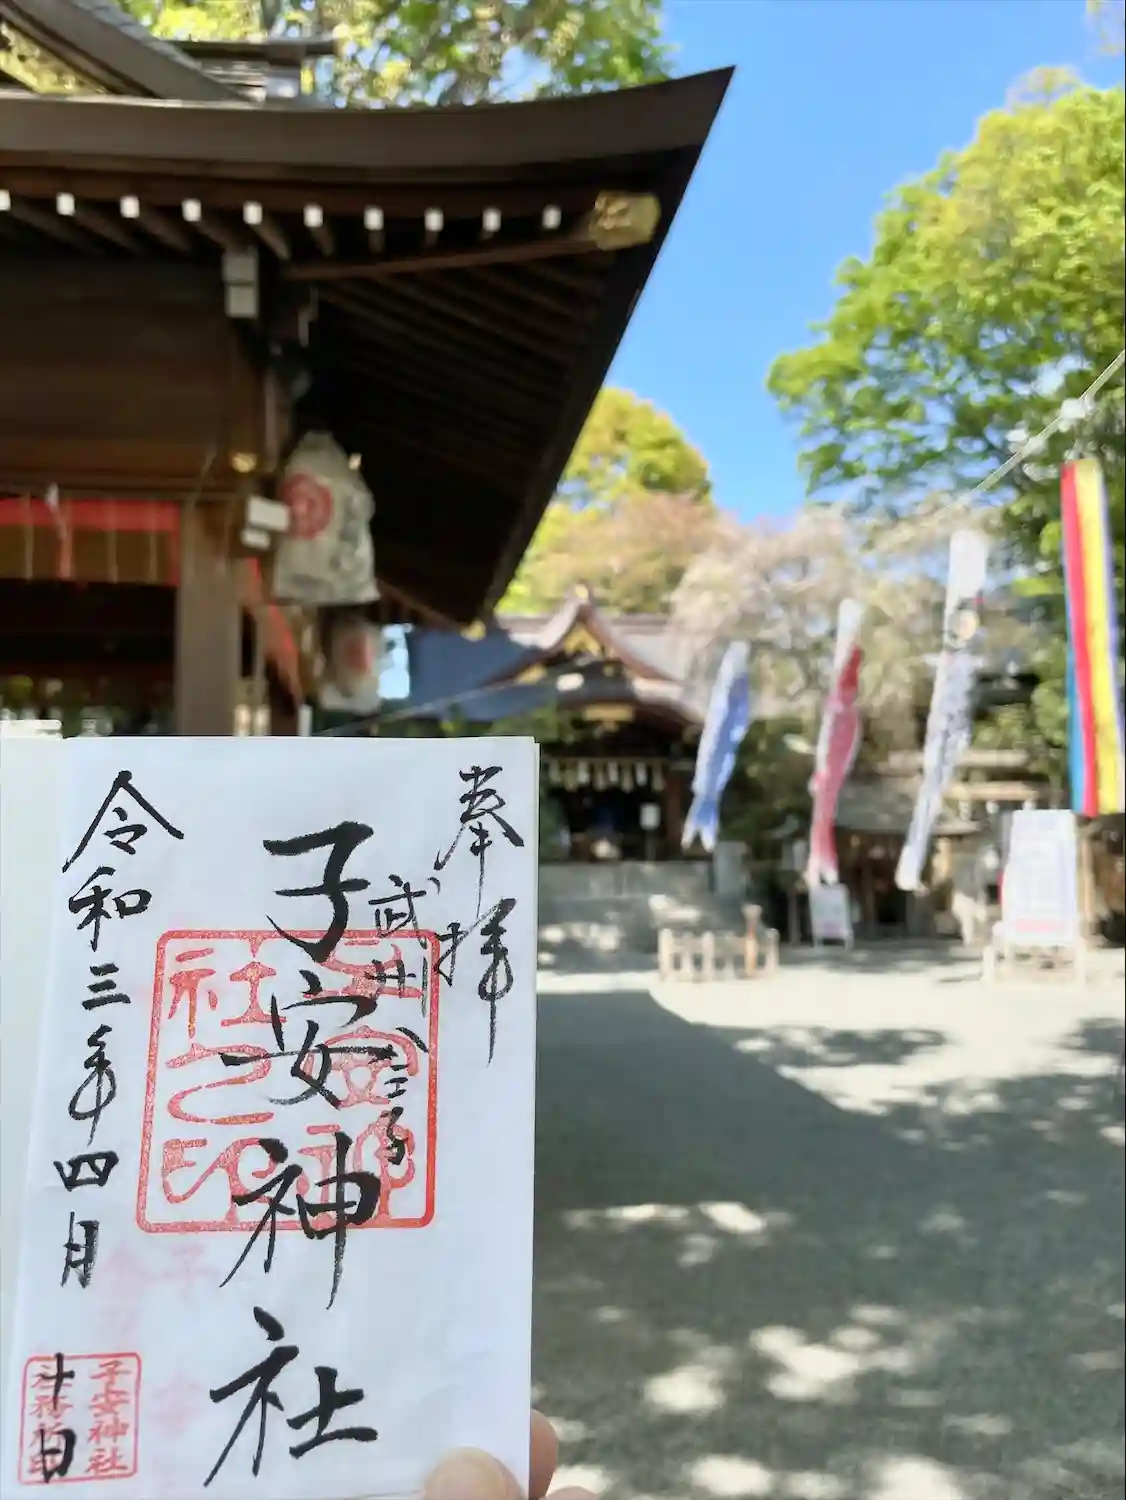 奉拝
武州八王子
子安神社
子安神社之印
令和三年四月十日
子安神社
社務所印